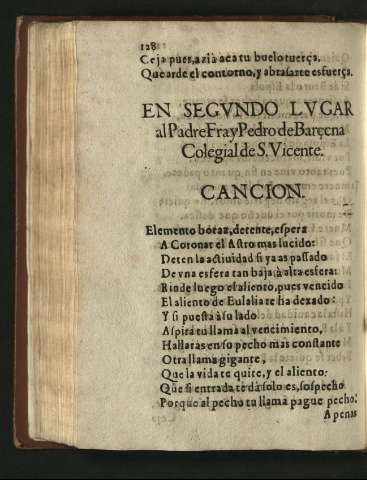 128
Ceja pues, azià acà tu buelo tuerça.
Que arde el contorno, y abrasarte esfuerça.
EN SEGVNDO LVGAR
al Padre Fray Pedro de Bareçna
Colegial de S. Vicente.
CANCION.
Elemento boraz, detente, espera
A Coronar el Astro mas lucido:
Deten la actiuidad si ya as passado
De vna esfera tan baja à alta esfera:
Rinde luego el aliento, pues vencido
El aliento de Eulalia te ha dexado:
Y si puesta à su lado
Aspira tu llama al vencimiento,
Hallaràs en so pecho mas constante
Otra llama gigante,
Que la vida te quite, y el aliento:
Que si entrada te dà solo es, sospecho
Porque al pecho tu llama pague pecho:
Apenas